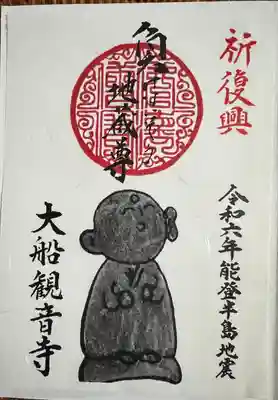 祈復興
令和六年能登半島地震
負けないぞ
地蔵尊
大船観音寺